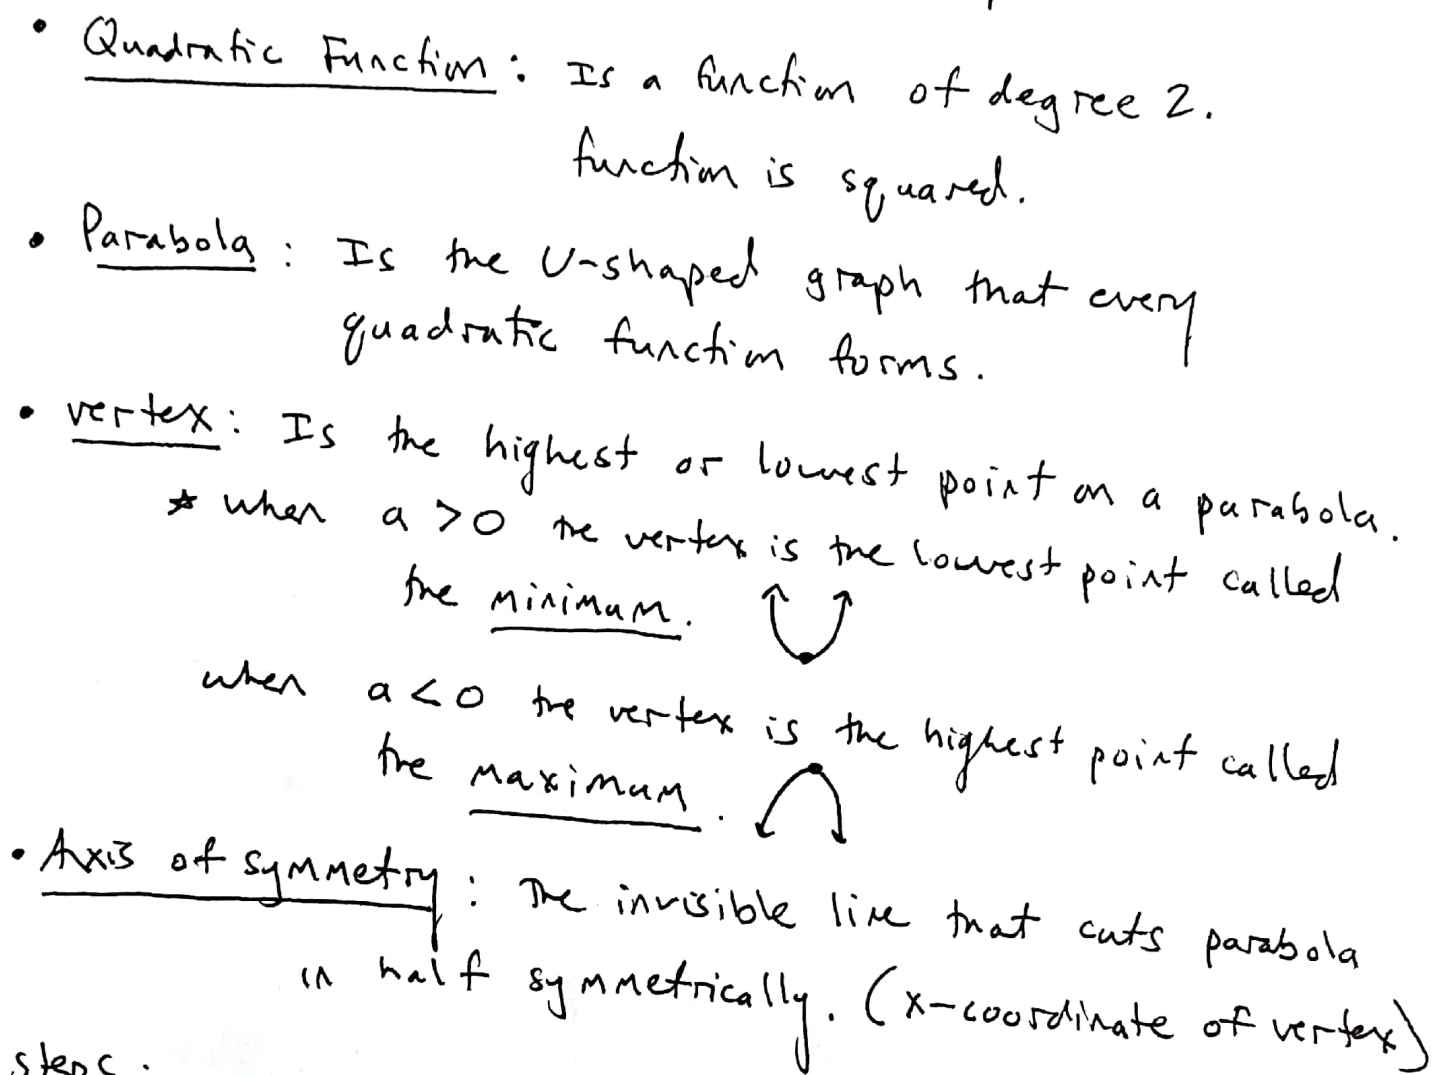 • Quadratic Function: Is a function of degree 2.
function is squared.
• Parabola: Is the U-shaped graph that every
quadratic function forms.
• vertex: Is the highest or lowest point on a parabola.
* when a > 0 the vertex is the lowest point called
the minimum.
when a < 0 the vertex is the highest point called
the maximum.
• Axis of symmetry: The invisible line that cuts parabola
in half symmetrically. (x-coordinate of vertex)
steps: